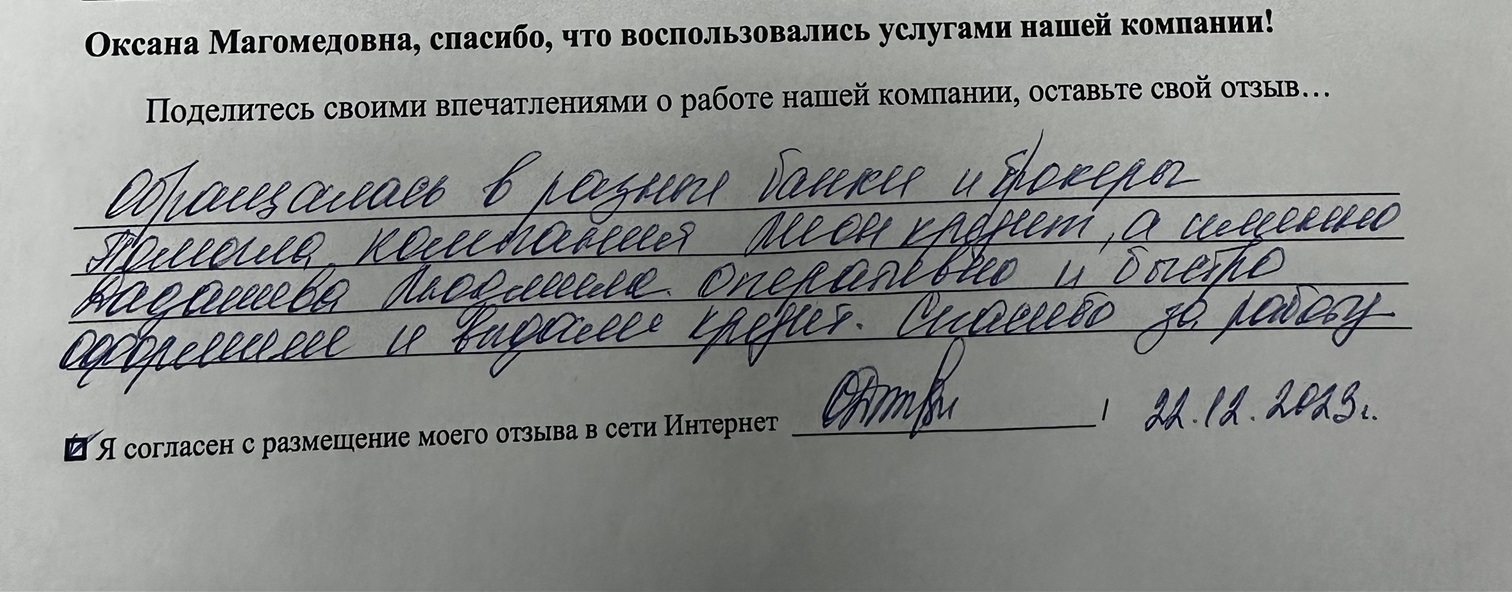 Оксана Магомедовна, спасибо, что воспользовались услугами нашей компании!
Поделитесь своими впечатлениями о работе нашей компании, оставьте свой отзыв…
Обращалась в разные банки и брокеры
Помогла компания Леон кредит, а именно
Людмила. Оперативно и быстро
оформили и выдали кредит. Спасибо за работу
Я согласен с размещение моего отзыва в сети Интернет / 22.12.2023г.